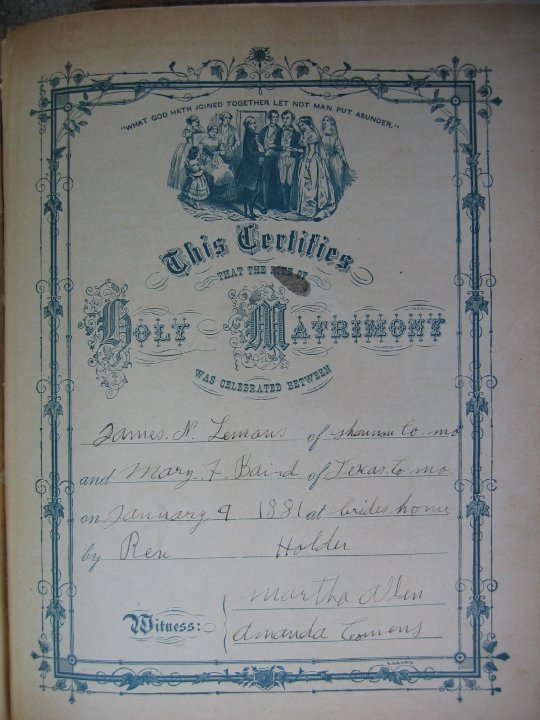 "WHAT GOD HATH JOINED TOGETHER LET NOT MAN PUT ASUNDER."
This Certifies
THAT THE RITE OF
HOLY MATRIMONY
WAS CELEBRATED BETWEEN
James. N. Lemons of Shannon Co. mo
and Mary. F. Baird of Texas. Co mo.
on January 9 1881 at brides home
by Rev Holder
Martha Allen
Witness:
Amanda